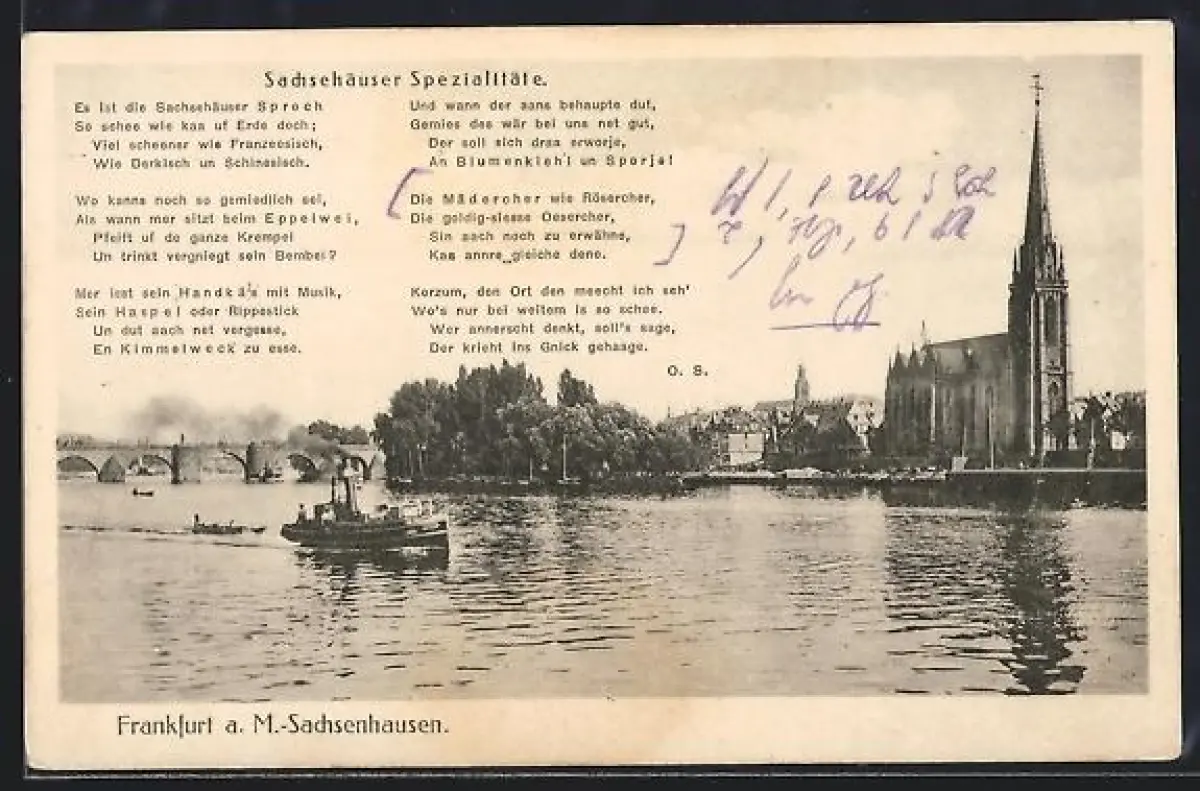 Sachsehäuser Spezialitäte.
Es ist die Sachsehäuser Sproch
So schee wie kaa uf Erde doch;
Viel scheener wie Franzeesisch,
Wie Derkisch un Schinesisch.
Wo kanns noch so gemiedlich sei,
Als wann mer sitzt beim Eppelwei,
Pfeift uf de ganze Krempel
Un trinkt vergniegt sein Bembel?
Mer isst sein Handkä's mit Musik,
Sein Haspel oder Rippestick
Un dut aach net vergesse,
En Kimmelweck zu esse.
Und wann der aans behaupte dut,
Gemies des wär bei uns net gut,
Der soll sich draa erworje,
An Blumenkiehl un Sporjel
Die Mädercher wie Rösercher,
Die goldig-siesse Oesercher,
Sin aach noch zu erwähne,
Kaa annre gleiche dene.
Korzum, den Ort den meecht ich seh'
Wo's nur bei weitem is so schee.
Wer annerscht denkt, soll's sage,
Der krieht ins Gnick gehaage.
O. S.
Frankfurt a. M.-Sachsenhausen.